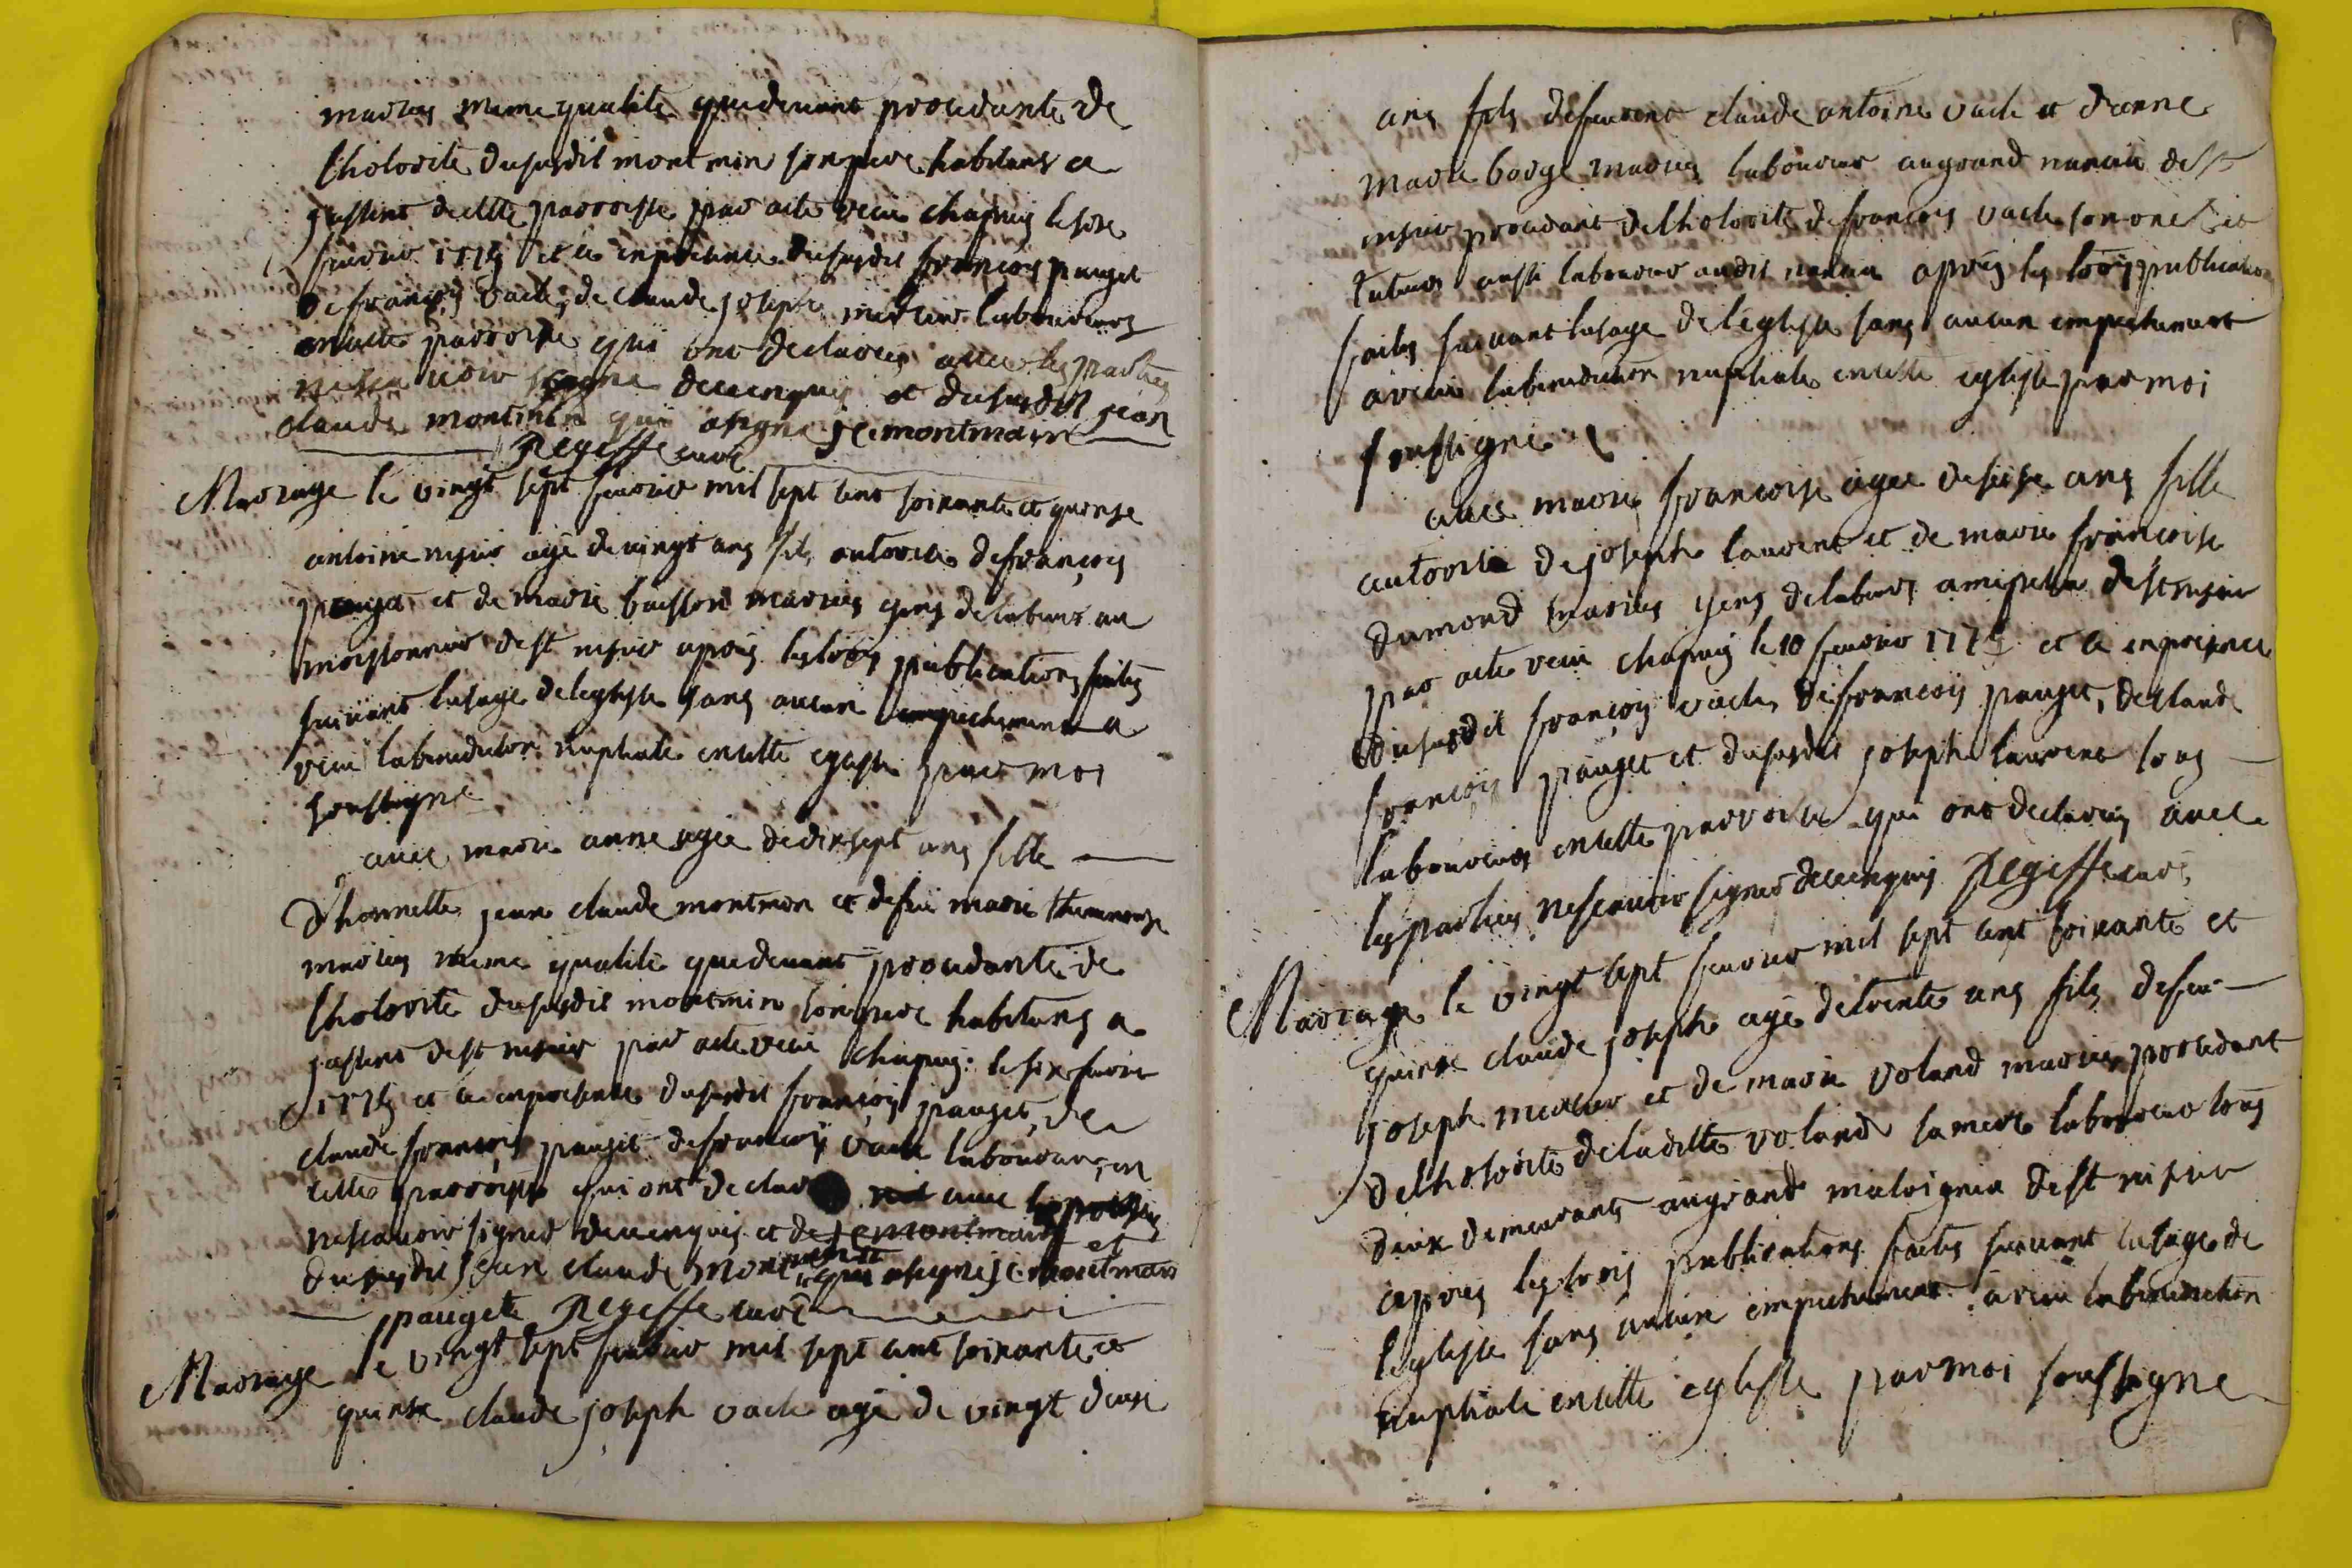 mariés meme qualité que devant procedante de
lhotorité dususdit montmin son pere habitans a
justens de cette parroisse par acte recu chapuis le
fevrier 1775 et a en presence dususdit françois pauget
de françois vacle, de claude joseph mercier laboureurs
en cette parroisse qui ont declarés avec les parties
ne scavoir signé de ce enquis et dususdit jean
claude montmin qui a signé jc montmain
Regeffe curé
Mariage le vingt sept fevrier mil sept cent soixante et quinse
antoine agé de vingt ans fils autorisé de françois
pauget et de marie buisson mariés gens de labeur au
moissonnier de st apres les trois publications faites
suivant lusage de leglise sans aucun empechement a
recu la benediction nuptiale en cette eglise par moi
soussigné
avec marie anne agée de dix sept ans fille
d'honnette jean claude montmin et de fue marie
mariés meme qualité que devant procedante de
lhotorité dususdit montmin son pere habitans a
justens de st par acte recu chapuis le six fevrier
1775 et a en presence dususdit françois pauget, de
claude françois pauget de françois vacle laboureurs, en
cette parroisse qui ont declaré avec les parties
ne scavoir signer de ce enquis et de jc montmain et
dususdit jean claude qui a signé jc montmain
pauget Regeffe curé
Mariage le vingt sept fevrier mil sept cent soixante et
quinse claude joseph vacle agé de vingt deux
ans fils defunt claude antoine vacle et d'anne
marie borge mariés laboureur au grand de st
procedant de lhotorité de françois vacle son oncle et
tuteur aussi laboureur audit apres les trois publications
faites suivant lusage de leglise sans aucun empechement
a recu la benediction nuptiale en cette eglise par moi
soussigné
avec marie françoise agée de seise ans fille
autorisée de joseph laurent et de marie françoise
dumond mariés gens de labeur de st
par acte recu chapuis le 10 fevrier 1775 et a en presence
dususdit françois vacle, de françois pauget, de claude
françois pauget et dususdit joseph laurent tous
laboureurs en cette parroisse qui ont declarés avec
les parties ne scavoir signer de ce enquis Regeffe curé
Mariage le vingt sept fevrier mil sept cent soixante et
quinse claude joseph agé de trente ans fils de feu
joseph mercier et de marie voland mariés procedant
de lhotorité de ladite voland sa mere laboureur tous
deux demeurants au grand de st
apres les trois publications faites suivant lusage de
leglise sans aucun empechement a recu la benediction
nuptiale en cette eglise par moi soussigné